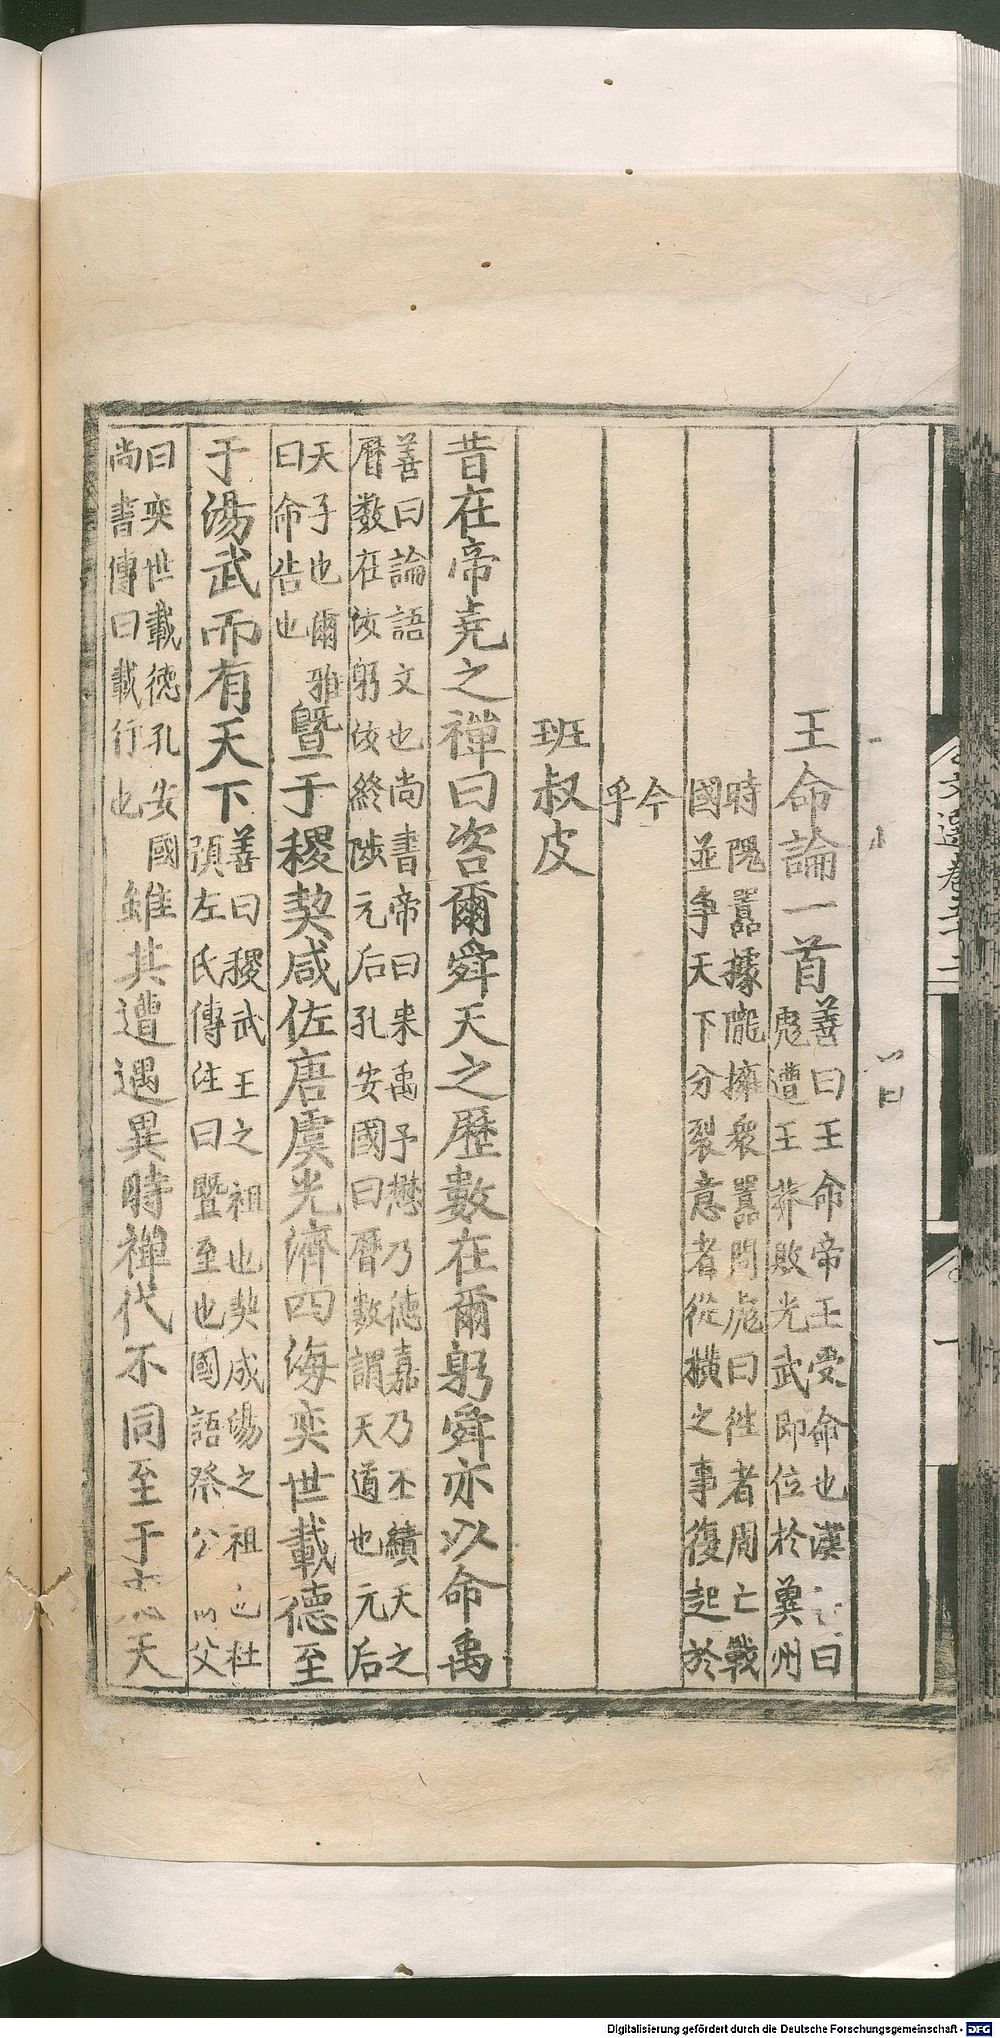 王命論一首善曰王命帝王受命也漢
曰彪遭王莽敗光武即位於兾州
時隗囂據隴擁衆囂問彪曰徃者周亡戰
國並爭天下分裂意者從橫之事復起於
今
乎
班叔皮
昔在帝堯之禪曰咨爾舜天之歷數在爾躬舜亦以命禹
善曰論語文也尚書帝曰来禹予懋乃德嘉乃丕績天之
曆数在汝躬汝終陟元后孔安國曰曆數謂天道也元后
天子也爾雅
曰命告也
曁于稷契咸佐唐虞光濟四海奕世載德至
于湯武而有天下
善曰稷武王之祖也契成湯之祖也杜
預左氏傳注曰曁至也國語祭公父
曰奕世載德孔安國
尚書傳曰載行也
雖其遭遇異時禪代不同至于天
文選卷五十二
一
Digitalisierung gefördert durch die Deutsche Forschungsgemeinschaft - DFG